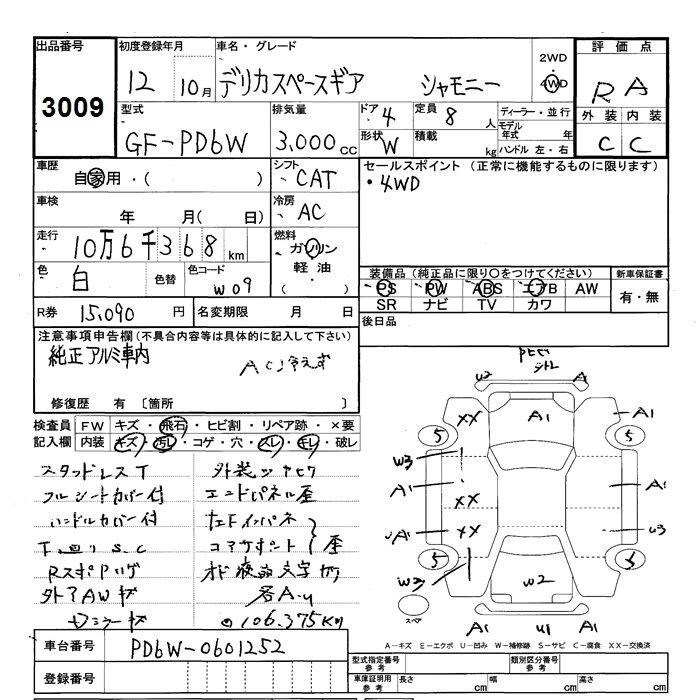 出品番号 初度登録年月 車名・グレード 2WD 評価点
3009 12 10月 デリカスペースギア シャモニー 4WD R A
型式 排気量 ドア 4 定員 8 人 ディーラー・並行 外装 内装
GF-PD6W 3,000 CC 形状 W 積載 kg モデル年式 年 C C
ハンドル 左・右
車歴 自家用・( ) シフト CAT セールスポイント (正常に機能するものに限ります)
・4WD
車検 年 月( 日) 冷房 AC
走行 10万6千368 km 燃料 ガソリン
軽油・
( )
色 白 色替 色コード W09
装備品 (純正品に限り○をつけてください) 新車保証書
PS PW ABS エアB AW 有・無
SR ナビ TV カワ
R券 15,090 円 名変期限 月 日 後日品
注意事項申告欄 (不具合内容等は具体的に記入して下さい)
純正アルミ車内 AC冷えず
修復歴 有 〔箇所 〕
検査員 FW キズ・飛石・ヒビ割・リペア跡・×要
記入欄 内装 キズ・汚レ・コゲ・穴・スレ・キレ・破レ
スタッドレスT
フルシートカバー付 エンドパネル歪
ハンドルカバー付 左Fインパネ
コアサポート 歪
液晶文字
外ア AW 各A.U
106.375Km
車台番号 PD6W-0601252
登録番号
U2 A1
XX A1 A1
5 5
W3
A1 XX A1
A1 XX U3
5 5
W3 W2
スペア A1 U1 A1
A-キズ E-エクボ U-凹み W-補修跡 S-サビ C-腐食 XX-交換済
型式指定番号 参考 類別区分番号 参考
車庫証明用 参考 長さ cm 幅 cm 高さ cm